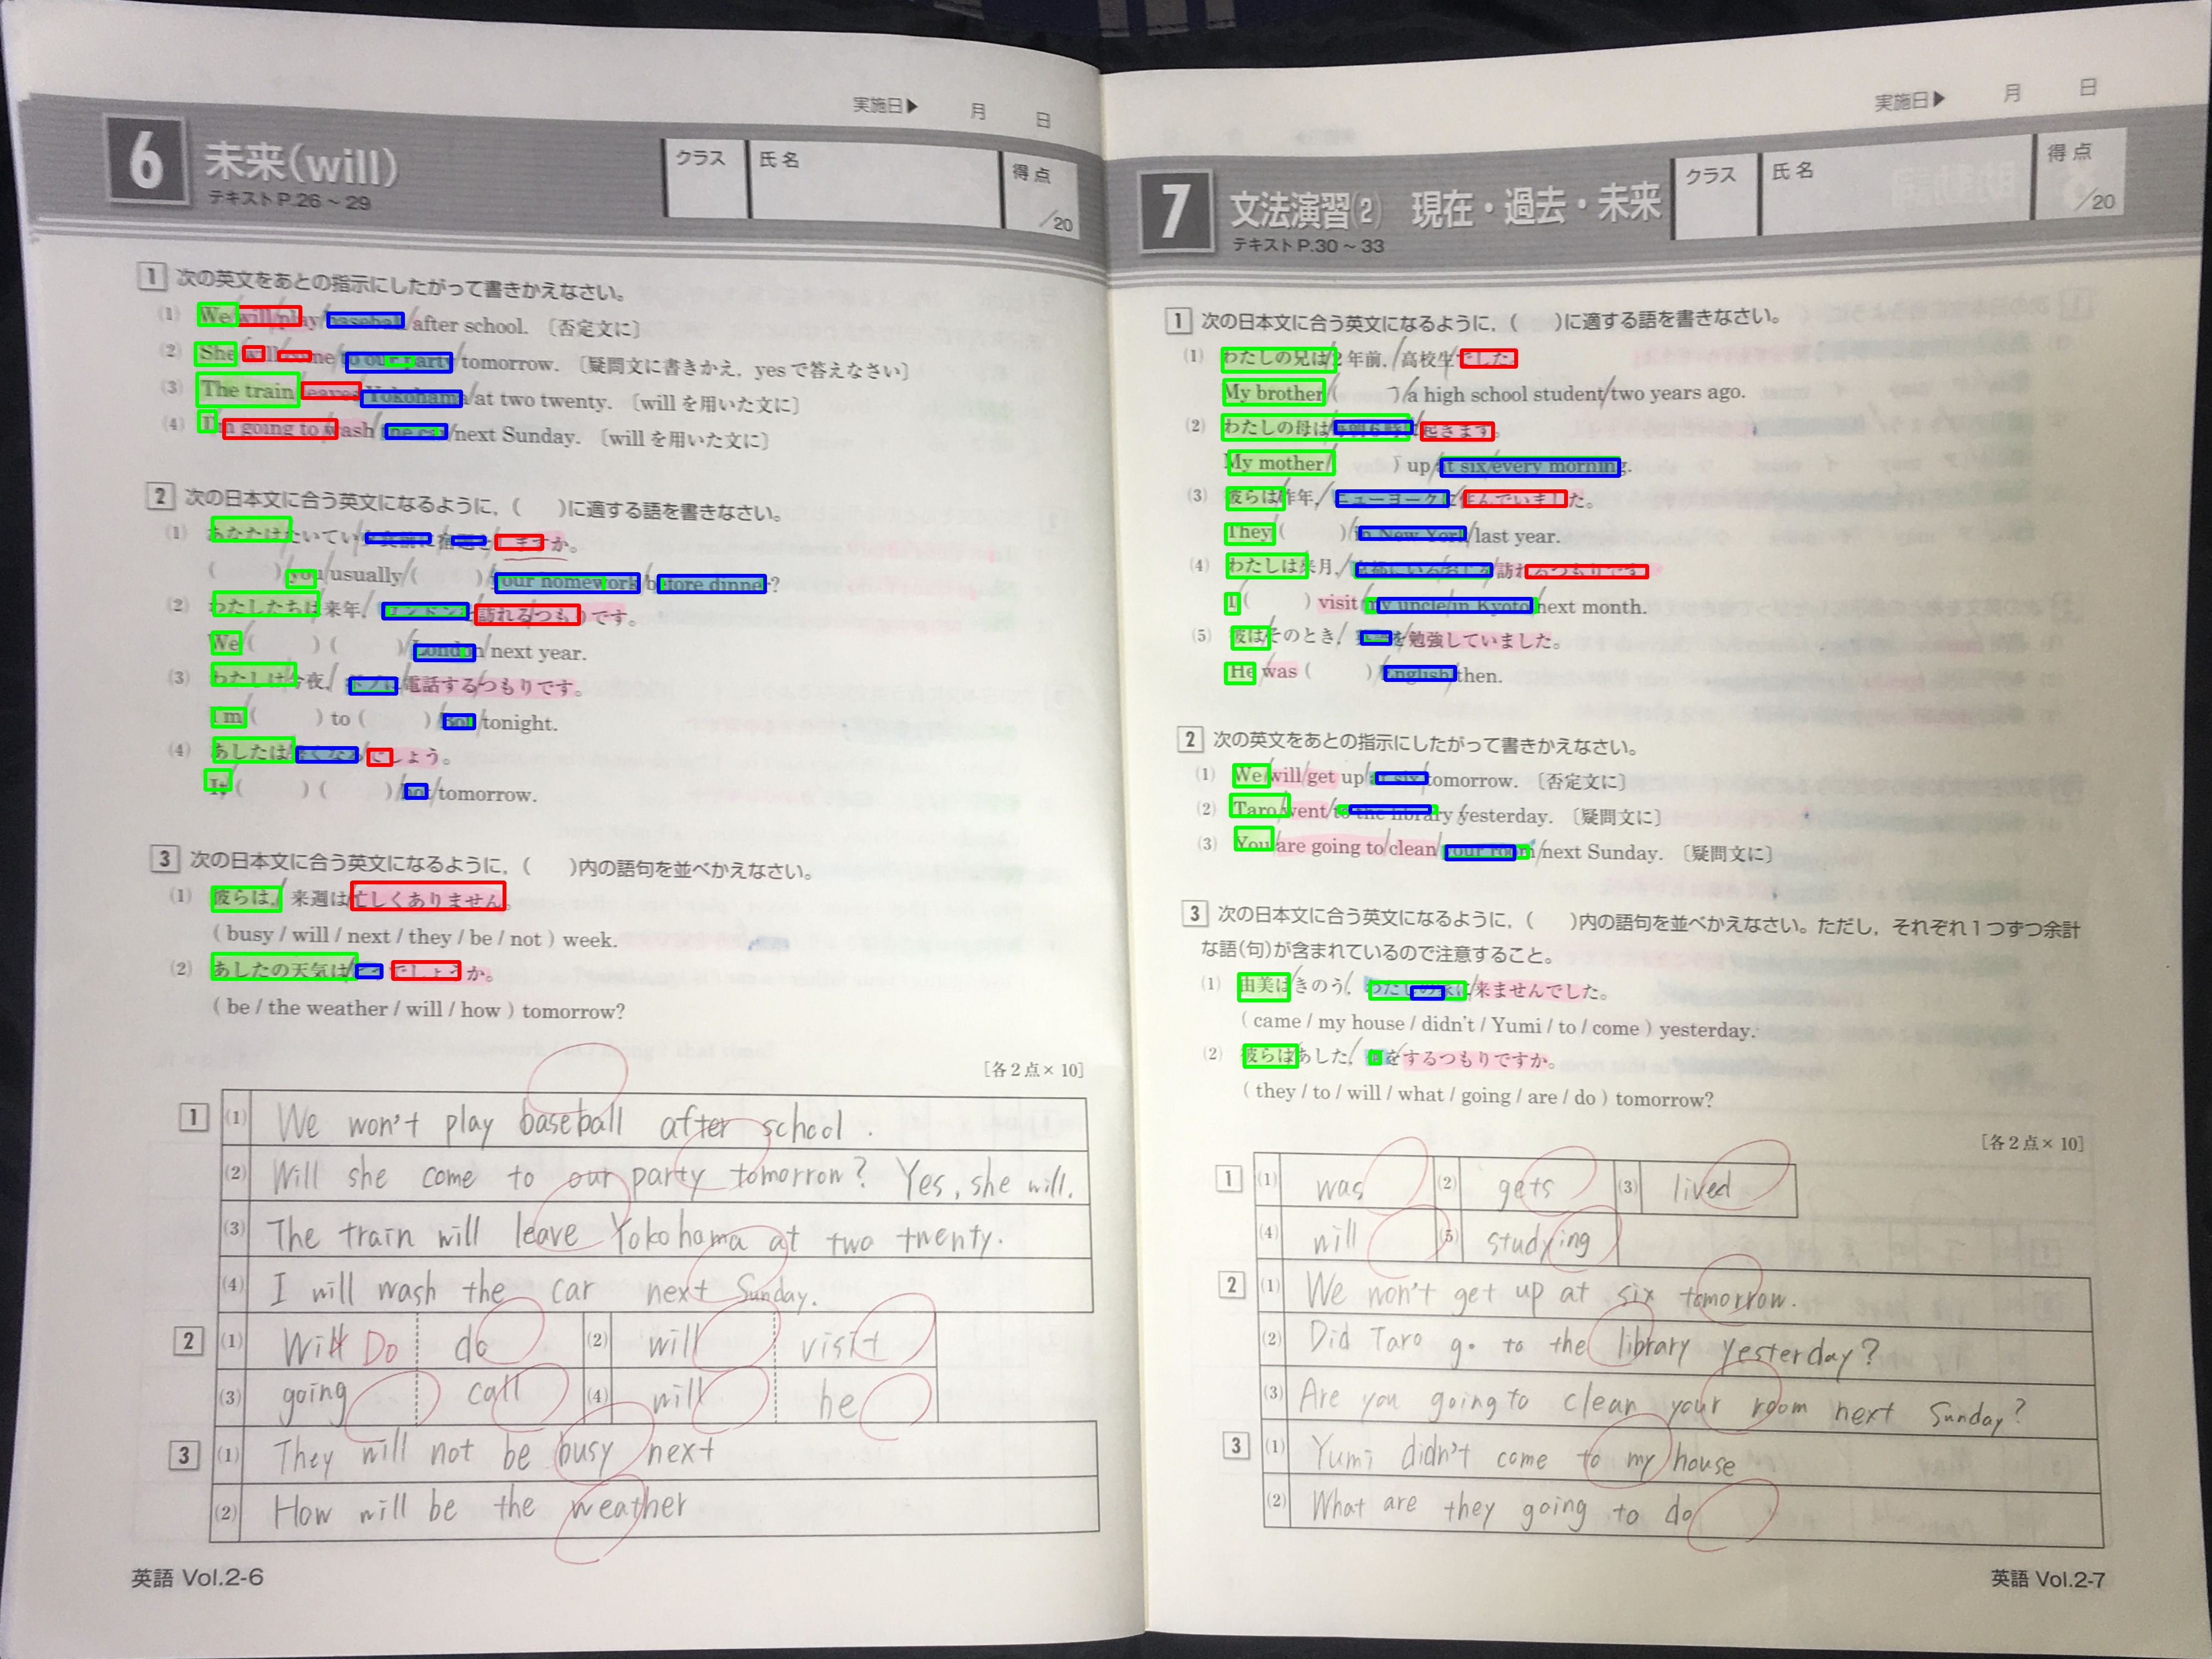 実施日▶ 月 日
6 未来(will)
テキストP.26～29
クラス 氏名 得点 /20
1 次の英文をあとの指示にしたがって書きかえなさい。
(1) We/will/play/baseball/after school. 〔否定文に〕
(2) She/will/come/to our party/tomorrow. 〔疑問文に書きかえ，yesで答えなさい〕
(3) The train/leaves/Yokohama/at two twenty. 〔willを用いた文に〕
(4) I'm going to/wash/the car/next Sunday. 〔willを用いた文に〕
2 次の日本文に合う英文になるように，( )に適する語を書きなさい。
(1) あなたはたいてい夕食前に宿題をしますか。
( )/you/usually/( )/your homework/before dinner?
(2) わたしたちは来年，ロンドンを訪れるつもりです。
We ( ) ( )/London/next year.
(3) わたしは今夜，ボブに電話するつもりです。
I'm ( ) to ( )/Bob/tonight.
(4) あしたは暑くなるでしょう。
It ( ) ( )/hot/tomorrow.
3 次の日本文に合う英文になるように，( )内の語句を並べかえなさい。
(1) 彼らは，来週は忙しくありません。
( busy / will / next / they / be / not ) week.
(2) あしたの天気はどうでしょうか。
( be / the weather / will / how ) tomorrow?
[各2点×10]
1 (1) We won't play baseball after school.
(2) Will she come to our party tomorrow? Yes, she will.
(3) The train will leave Yokohama at two twenty.
(4) I will wash the car next Sunday.
2 (1) Will Do do (2) will visit
(3) going call (4) will be
3 (1) They will not be busy next
(2) How will be the weather
英語 Vol.2-6
実施日▶ 月 日
7 文法演習(2) 現在・過去・未来
テキストP.30～33
クラス 氏名 得点 /20
1 次の日本文に合う英文になるように，( )に適する語を書きなさい。
(1) わたしの兄は/2年前，/高校生でした。
My brother/( )/a high school student/two years ago.
(2) わたしの母は/毎朝6時に/起きます。
My mother/( ) up/at six/every morning.
(3) 彼らは/昨年，/ニューヨークに/住んでいました。
They ( )/in New York/last year.
(4) わたしは来月，/京都にいるおじを/訪れるつもりです。
I ( ) visit/my uncle/in Kyoto/next month.
(5) 彼は/そのとき，/英語を勉強していました。
He/was ( )/English/then.
2 次の英文をあとの指示にしたがって書きかえなさい。
(1) We/will/get up/at six/tomorrow. 〔否定文に〕
(2) Taro/went/to the library/yesterday. 〔疑問文に〕
(3) You/are going to/clean/your room/next Sunday. 〔疑問文に〕
3 次の日本文に合う英文になるように，( )内の語句を並べかえなさい。ただし，それぞれ1つずつ余計
な語(句)が含まれているので注意すること。
(1) 由美は/きのう，/わたしの家に/来ませんでした。
( came / my house / didn't / Yumi / to / come ) yesterday.
(2) 彼らは/あした，/何をするつもりですか。
( they / to / will / what / going / are / do ) tomorrow?
[各2点×10]
1 (1) was (2) gets (3) lived
(4) will (5) studying
2 (1) We won't get up at six tomorrow.
(2) Did Taro go to the library yesterday?
(3) Are you going to clean your room next Sunday?
3 (1) Yumi didn't come to my house
(2) What are they going to do
英語 Vol.2-7